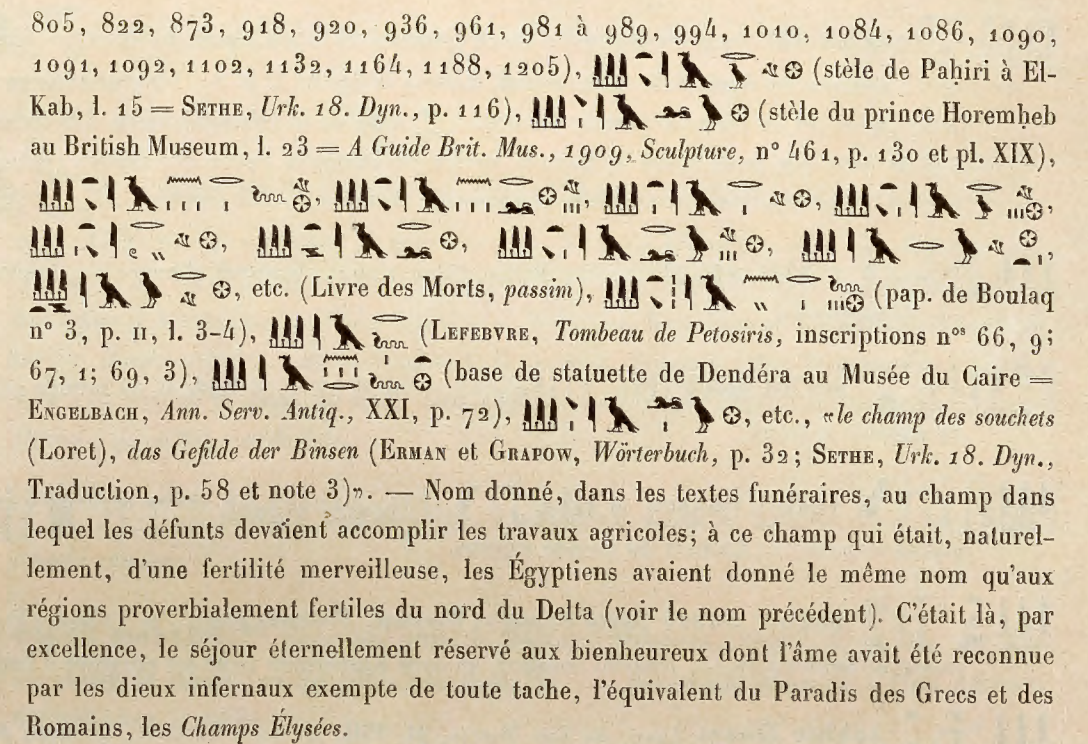 805, 822, 873, 918, 920, 936, 961, 981 à 989, 994, 1010, 1084, 1086, 1090,
1091, 1092, 1102, 1132, 1164, 1188, 1205), (stèle de Paḥiri à El-
Kab, l. 15 = SETHE, Urk. 18. Dyn., p. 116), (stèle du prince Horemḥeb
au British Museum, l. 23 = A Guide Brit. Mus., 1909, Sculpture, n° 461, p. 130 et pl. XIX),
etc. (Livre des Morts, passim), (pap. de Boulaq
n° 3, p. II, l. 3-4), (LEFEBVRE, Tombeau de Petosiris, inscriptions nos 66, 9;
67, 1; 69, 3), (base de statuette de Dendéra au Musée du Caire =
ENGELBACH, Ann. Serv. Antiq., XXI, p. 72), etc., «le champ des souchets
(Loret), das Gefilde der Binsen (ERMAN et GRAPOW, Wörterbuch, p. 32; SETHE, Urk. 18. Dyn.,
Traduction, p. 58 et note 3)». — Nom donné, dans les textes funéraires, au champ dans
lequel les défunts devaient accomplir les travaux agricoles; à ce champ qui était, naturel-
lement, d'une fertilité merveilleuse, les Égyptiens avaient donné le même nom qu'aux
régions proverbialement fertiles du nord du Delta (voir le nom précédent). C'était là, par
excellence, le séjour éternellement réservé aux bienheureux dont l'âme avait été reconnue
par les dieux infernaux exempte de toute tache, l'équivalent du Paradis des Grecs et des
Romains, les Champs Élysées.